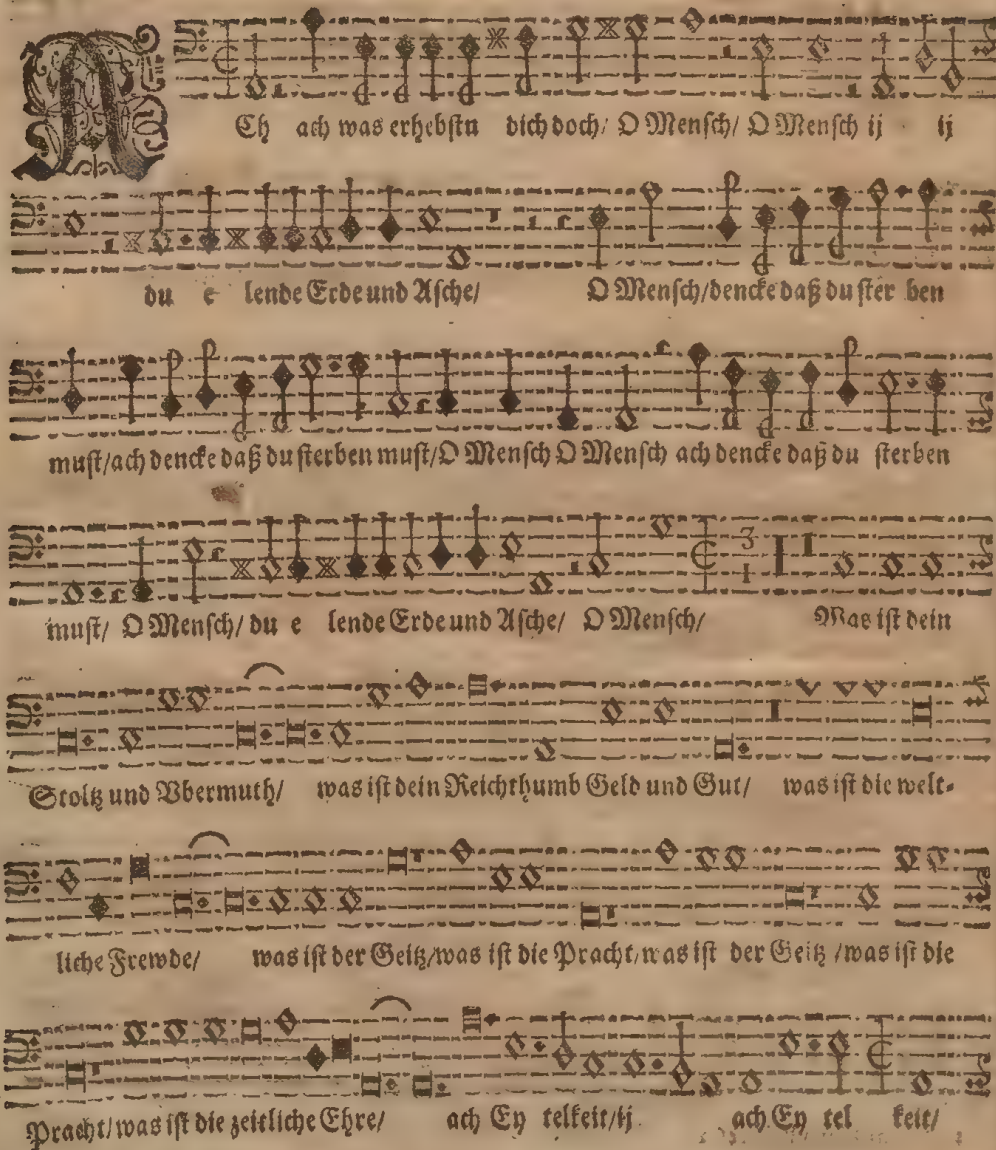 ACh ach was erhebstu dich doch/ O Mensch/ O Mensch ij ij
du e lende Erde und Asche/ O Mensch/dencke daß du ster ben
must/ach dencke daß du sterben must/O Mensch O Mensch ach dencke daß du sterben
must/ O Mensch/ du e lende Erde und Asche/ O Mensch/ Was ist dein
Stoltz und Vbermuth/ was ist dein Reichthumb Geld und Gut/ was ist die welt-
liche Frewde/ was ist der Geitz/was ist die Pracht/was ist der Geitz /was ist die
Pracht/was ist die zeitliche Ehre/ ach Ey telkeit/ij ach Ey tel keit/